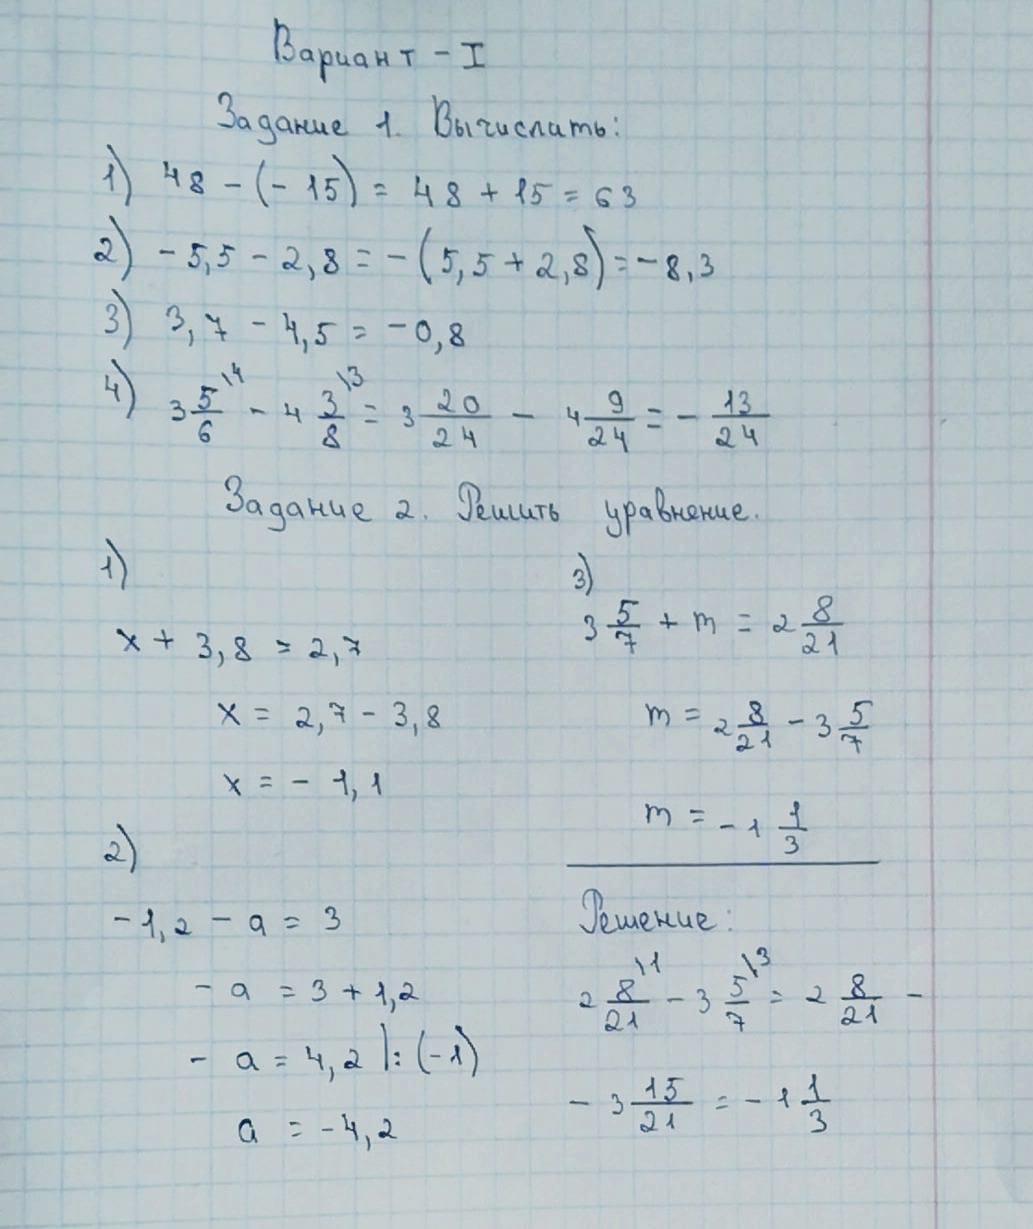 Вариант - I
Задание 1. Вычислить:
1) 48 - (- 15) = 48 + 15 = 63
2) - 5,5 - 2,8 = - (5,5 + 2,8) = - 8,3
3) 3,7 - 4,5 = - 0,8
4) 3 5/6 \4 - 4 3/8 \3 = 3 20/24 - 4 9/24 = - 13/24
Задание 2. Решить уравнение.
1)
x + 3,8 = 2,7
x = 2,7 - 3,8
x = - 1,1
2)
- 1,2 - a = 3
- a = 3 + 1,2
- a = 4,2 |: (-1)
a = - 4,2
3)
3 5/7 + m = 2 8/21
m = 2 8/21 - 3 5/7
m = - 1 1/3
Решение:
2 8/21 \1 - 3 5/7 \3 = 2 8/21 -
- 3 15/21 = - 1 1/3